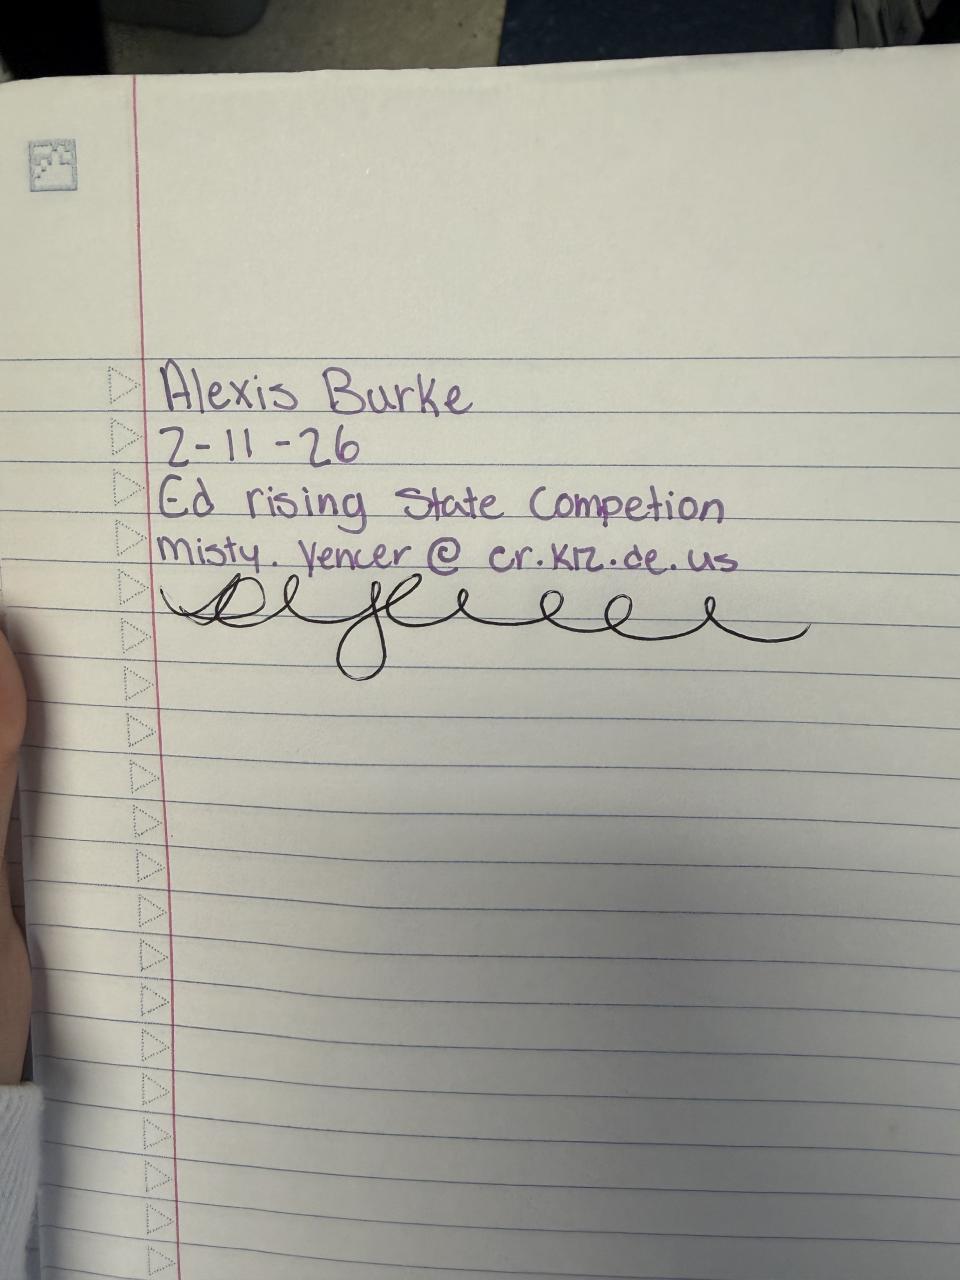 Alexis Burke
2-11-26
Ed rising State Competion
misty.yencer@cr.k12.de.us